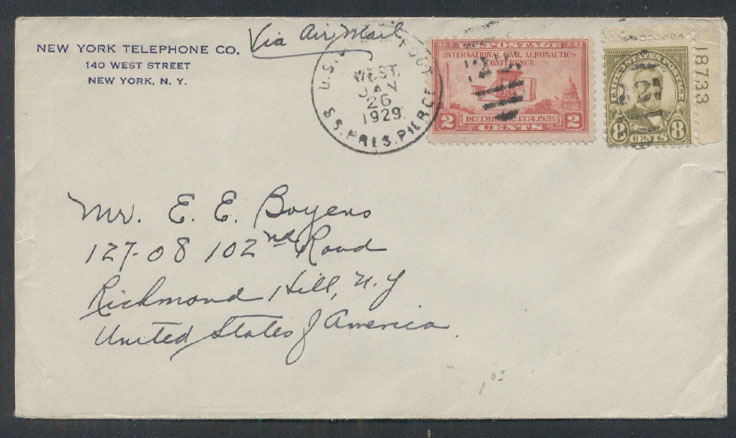 NEW YORK TELEPHONE CO.
140 WEST STREET
NEW YORK, N. Y.
Via Air Mail
U.S.
WEST.
JAN
26
1929
S.S. PRES. PIERCE
U.S. POSTAGE
INTERNATIONAL CIVIL AERONAUTICS
CONFERENCE
2 CENTS 2
UNITED STATES POSTAGE
8 CENTS 8
18733
Mr. E. E. Boyens
127-08 102nd Road
Richmond Hill, N.Y
United States of America.